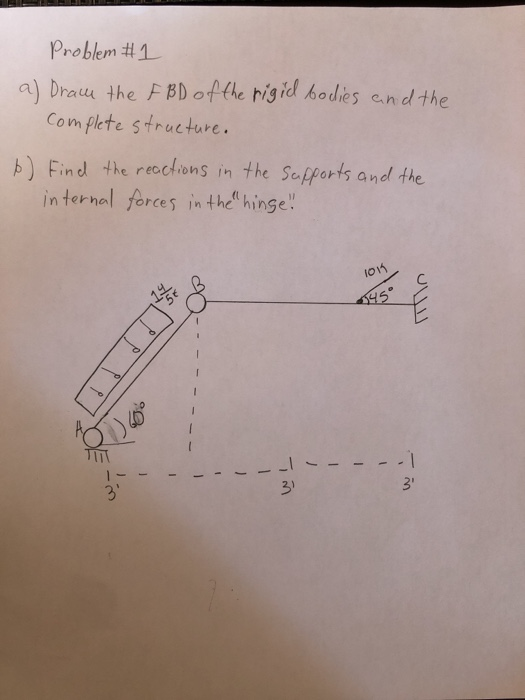 Problem #1
a) Draw the FBD of the rigid bodies and the
Complete structure.
b) Find the reactions in the Supports and the
internal forces in the "hinge".
10K
C
B
45°
A
60°
3'
3'
3'